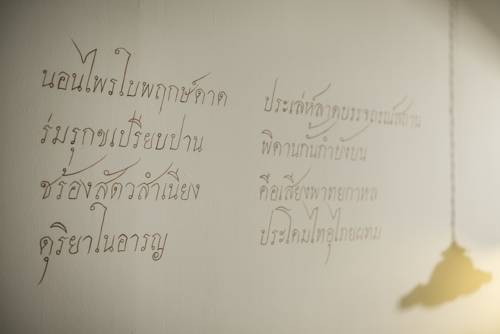 นอนไพรใบพฤกษ์ดาด
ร่มรุกขเปรียบปาน
ซร้องสัตวสำเนียง
ดุริยาในอารญ
ประเล่ห์ลาดบรรจถรณ์สถาน
พิดานกั้นกำบังบน
คือเสียงพาทยกาหล
ประโคมไทอุไทยผทม